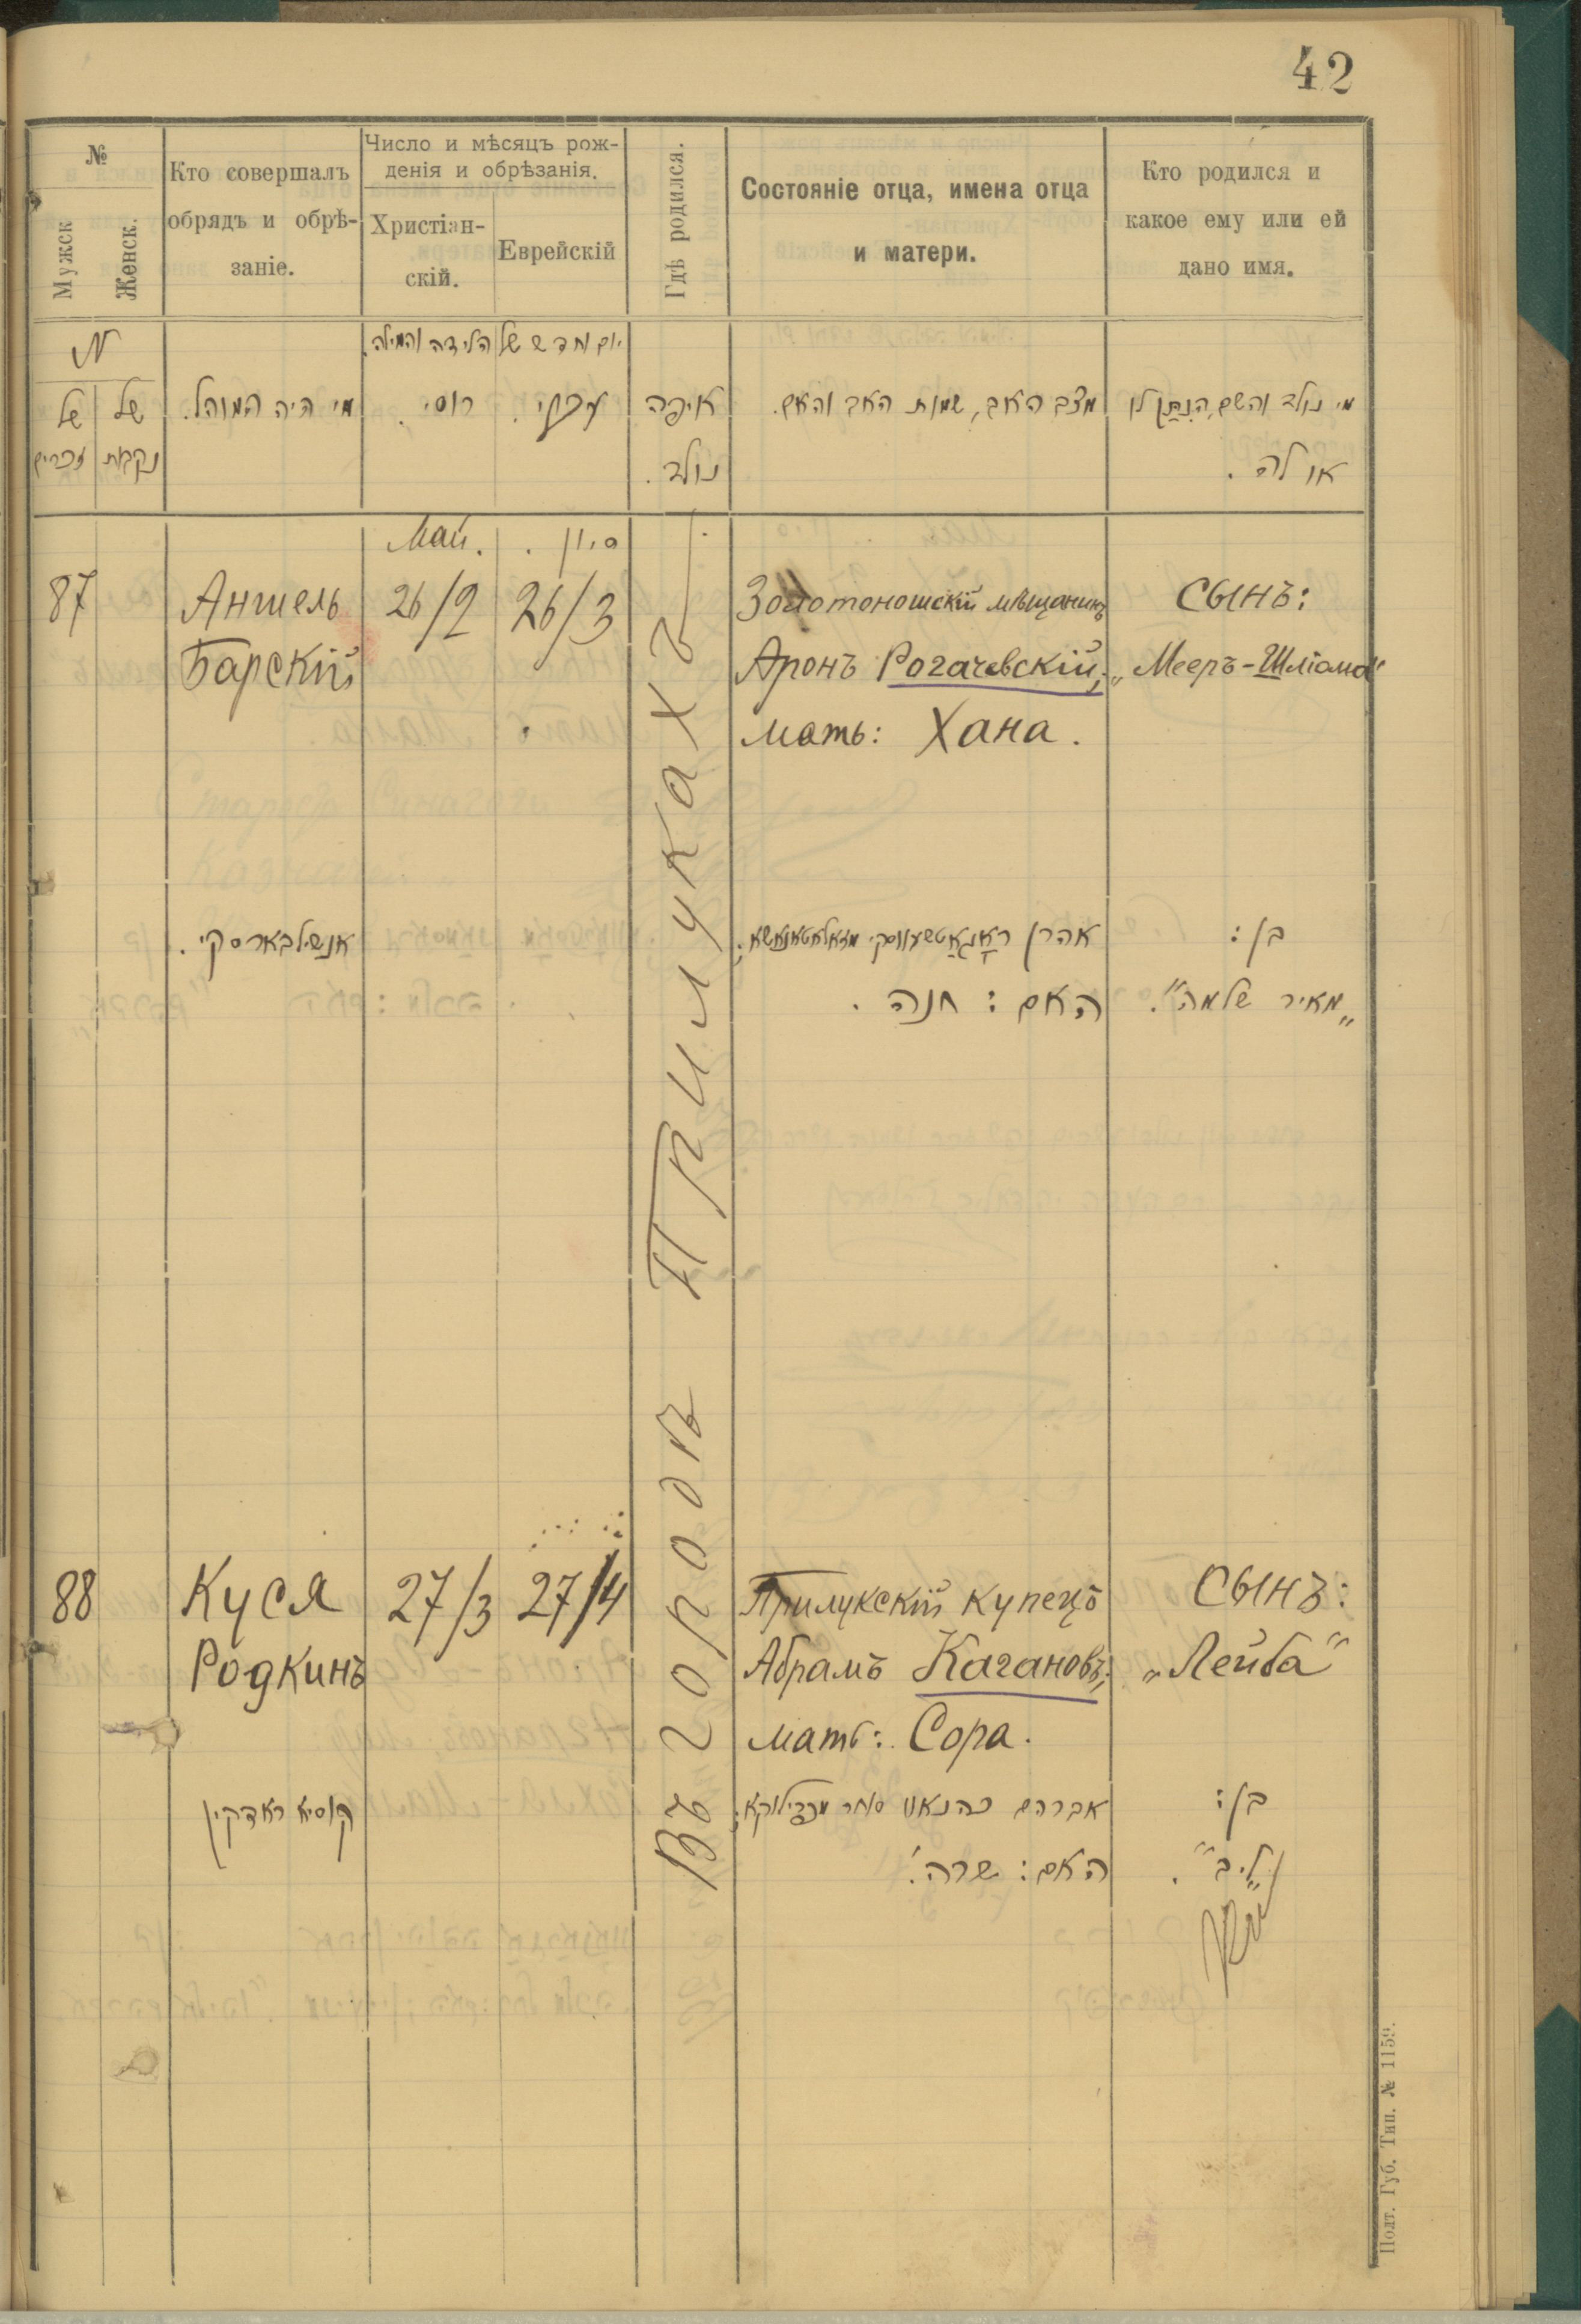 42
№
Мужск
Женск.
Кто совершалъ
обрядъ и обрѣ-
заніе.
Число и мѣсяцъ рож-
денія и обрѣзанія.
Христіан-
скій.
Еврейскій
Гдѣ родился.
Состояніе отца, имена отца
и матери.
Кто родился и
какое ему или ей
дано имя.
N
של
זכרים
של
נקבות
מי היה המוהל.
יום וחדש של הלידה והמילה.
רוסי.
עברי.
איפה
נולד.
מצב האב, שמות האב והאם.
מי נולד והשם הנתן לו
או לה.
Май.
סיון.
87
Аншель
Барскій
26/2
26/3
Въ городѣ Прилукахъ.
Золотоношскій мѣщанинъ
Аронъ Рогачевскій;
мать: Хана.
Сынъ:
„Мееръ-Шліома"
אנשיל בארסקי.
אהרן ראגאטשעווסקי מזאלאטאנאשא;
האם: חנה.
בן:
„מאיר שלמה".
88
Куся
Родкинъ
27/3
27/4
Прилукскій купецъ
Абрамъ Кагановъ;
мать: Сора.
Сынъ:
„Лейба"
קוסיא ראדקין
אברהם כהנאוו סוחר מפרילוקא;
האם: שרה.
בן:
„ליב".
Полт. Губ. Тип. № 1159.